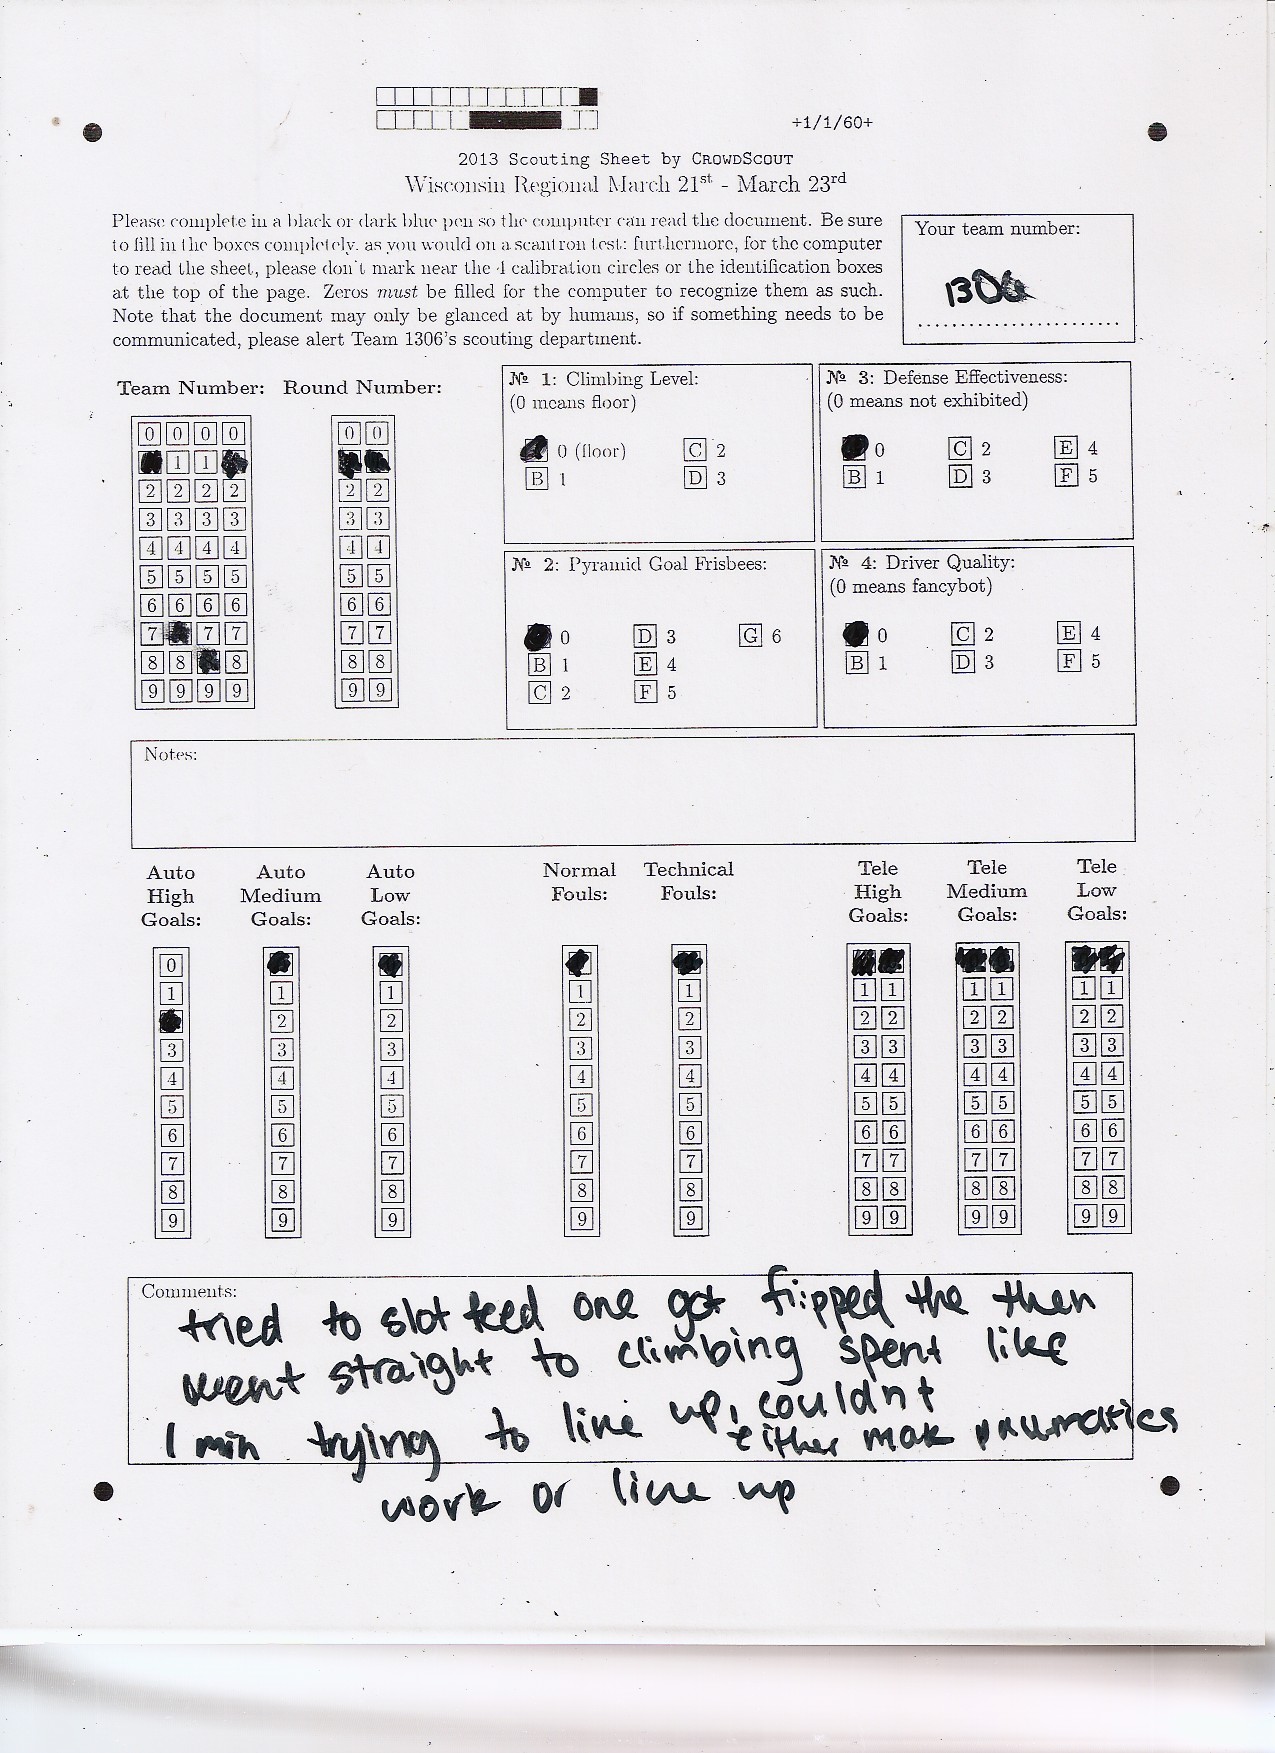 +1/1/60+
2013 Scouting Sheet by CROWDSCOUT
Wisconsin Regional March 21st - March 23rd
Please complete in a black or dark blue pen so the computer can read the document. Be sure
to fill in the boxes completely, as you would on a scantron test; furthermore, for the computer
to read the sheet, please don't mark near the 4 calibration circles or the identification boxes
at the top of the page. Zeros must be filled for the computer to recognize them as such.
Note that the document may only be glanced at by humans, so if something needs to be
communicated, please alert Team 1306's scouting department.
Your team number:
1306
Team Number: Round Number:
0 0 0 0 0 0
1 1
2 2 2 2 2 2
3 3 3 3 3 3
4 4 4 4 4 4
5 5 5 5 5 5
6 6 6 6 6 6
7 7 7 7 7
8 8 8 8 8
9 9 9 9 9 9
№ 1: Climbing Level:
(0 means floor)
0 (floor) C 2
B 1 D 3
№ 3: Defense Effectiveness:
(0 means not exhibited)
0 C 2 E 4
B 1 D 3 F 5
№ 2: Pyramid Goal Frisbees:
0 D 3 G 6
B 1 E 4
C 2 F 5
№ 4: Driver Quality:
(0 means fancybot)
0 C 2 E 4
B 1 D 3 F 5
Notes:
Auto Auto Auto Normal Technical Tele Tele Tele
High Medium Low Fouls: Fouls: High Medium Low
Goals: Goals: Goals: Goals: Goals: Goals:
0
1 1 1 1 1 1 1 1 1 1 1
2 2 2 2 2 2 2 2 2 2
3 3 3 3 3 3 3 3 3 3 3
4 4 4 4 4 4 4 4 4 4 4
5 5 5 5 5 5 5 5 5 5 5
6 6 6 6 6 6 6 6 6 6 6
7 7 7 7 7 7 7 7 7 7 7
8 8 8 8 8 8 8 8 8 8 8
9 9 9 9 9 9 9 9 9 9 9
Comments:
tried to slot feed one got flipped the then
went straight to climbing spent like
1 min trying to line up, couldnt
either mak pnumatics
work or line up